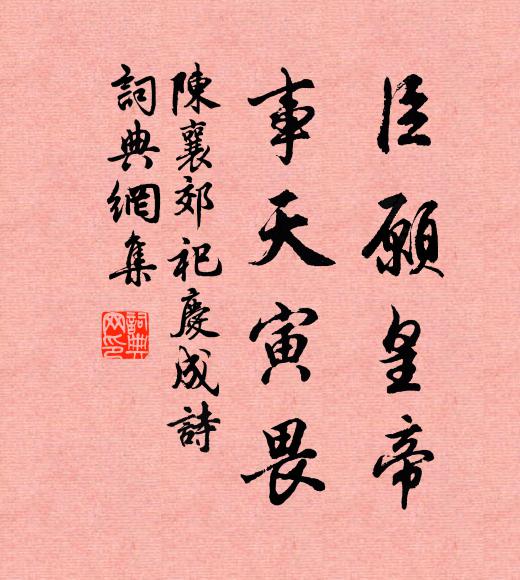 臣願皇帝
事天寅畏
陳襄郊祀慶成詩
詞典網集